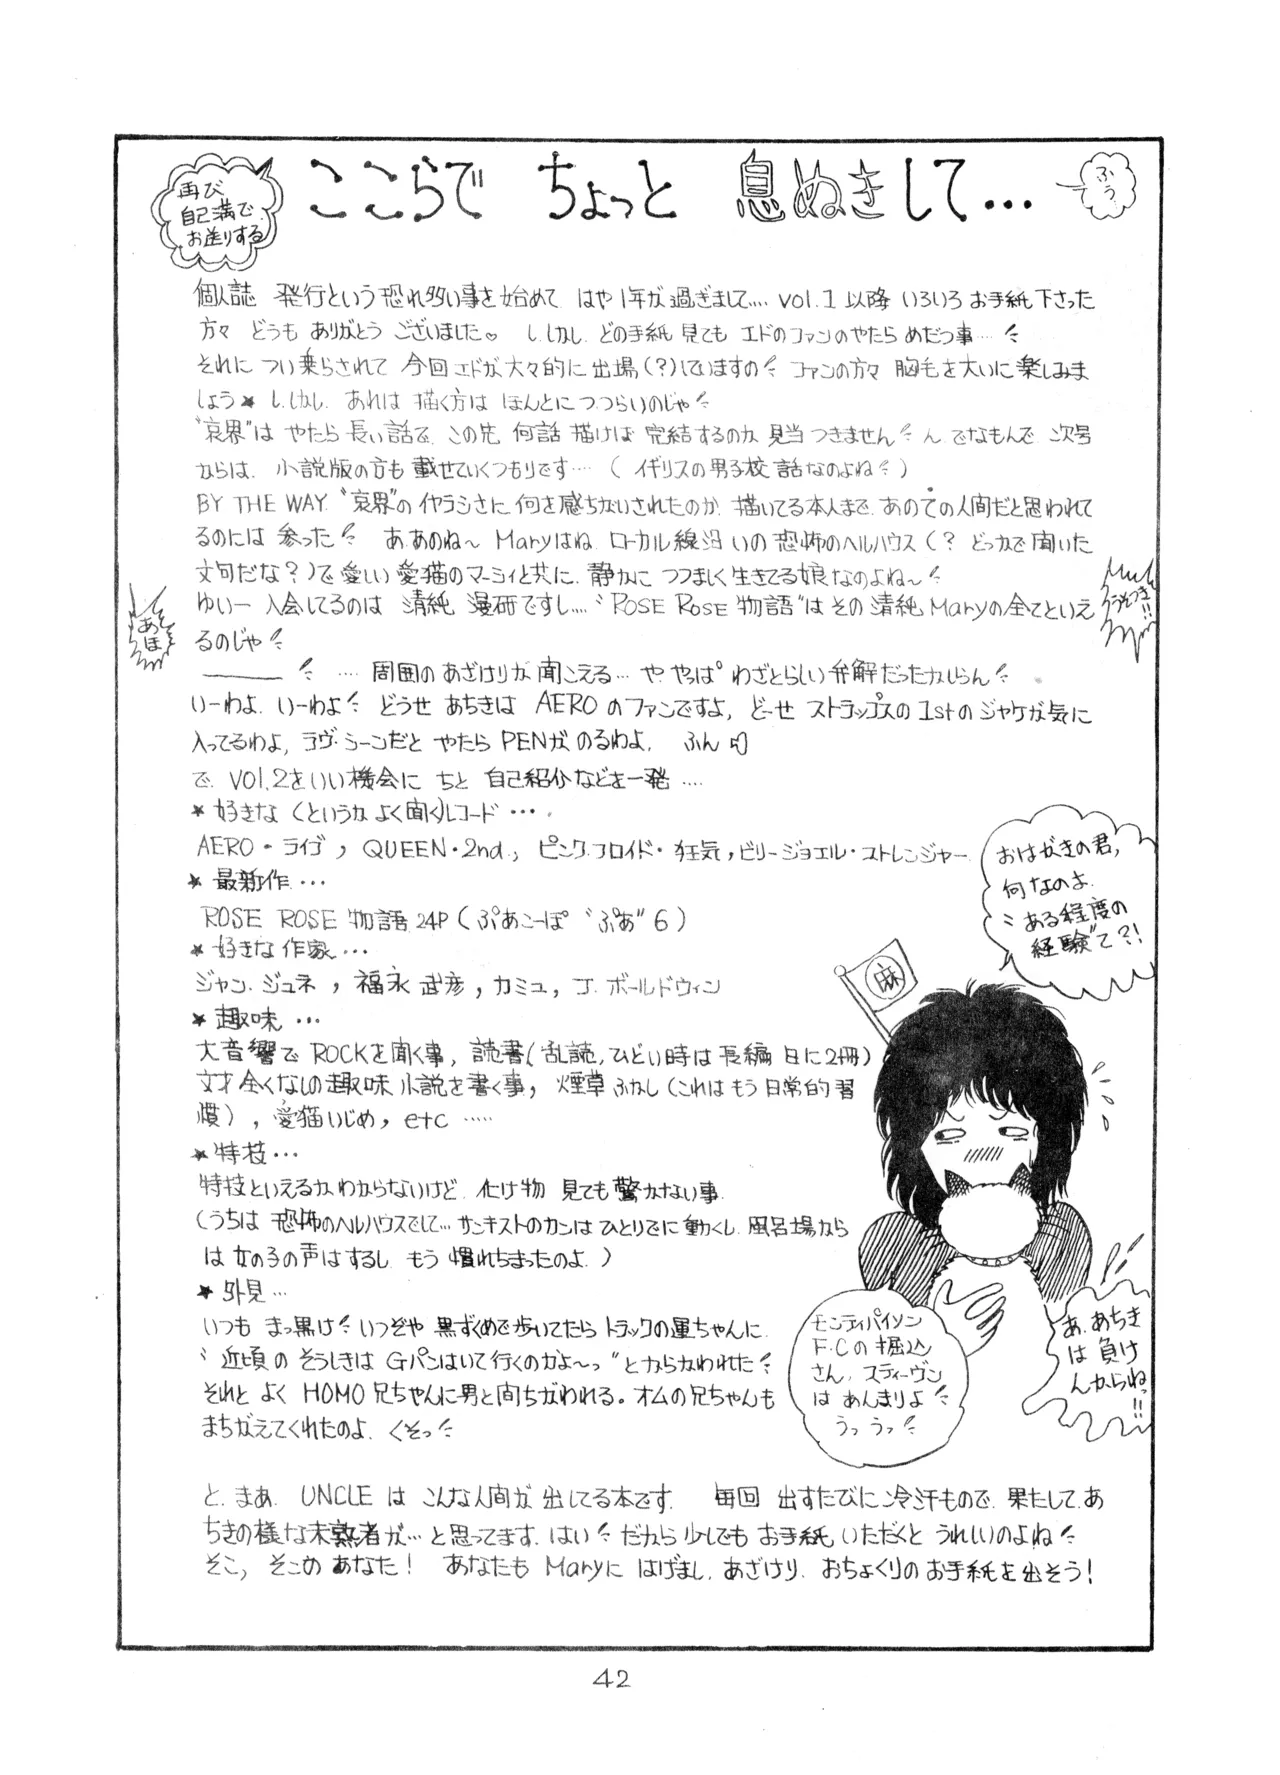 再び
自己満で
お送りする
ここらで ちょっと 息ぬきして…
ふぅ
個人誌 発行という恐れ多い事を始めて はや1年が過ぎまして…. vol.1以降 いろいろお手紙下さった
方々 どうも ありがとう ございました♡ し、しかし、どの手紙 見ても エドのファンのやたら めだつ事…〃
それに つい乗らされて 今回エドが大々的に出場(?)していますの〃 ファンの方々 胸毛を大いに楽しみま
しょう★ し、しかし、あれは 描く方は ほんとに つ、つらいのじゃ〃
“哀界”は やたら長い話で、この先 何話 描けば 完結するのか 見当つきません〃 ん、でなもんで、次号
からは、小説版の方も載せていくつもりです…. (イギリスの男子校話なのよね〃)
BY THE WAY “哀界”のイヤラシさに何を感ちがいされたのか、描いてる本人まで、あのての人間だと思われて
るのには 参った〃 あ、あのね〜 Maryはね ローカル線沿いの恐怖のヘルハウス(? どっかで聞いた
文句だな?)で愛しい愛猫のマーシィと共に、静かに つつましく生きてる娘なのよね〜〃
ゆいー 入会してるのは 清純 漫研ですし…. “ROSE ROSE 物語”はその清純Maryの全てといえ
るのじゃ〃
うそつき!!
あほ
〃 …. 周囲のあざけりが聞こえる… や、やっぱ わざとらしい弁解だったかしらん〃
いーわよ、いーわよ〃 どうせ あちきは AEROのファンですよ, どーせ ストラップスの1stのジャケが気に
入ってるわよ, ラヴ・シーンだと やたら PENが のるわよ, ふん
で、vol.2をいい機会に ちと 自己紹介などを一発 ….
★ 好きな(というか よく聞く)レコード …
AERO・ライヴ, QUEEN・2nd, ピンク・フロイド・狂気, ビリー・ジョエル・ストレンジャー
★ 最新作 …
ROSE ROSE 物語 24P (ぷあこーぽ “ぷあ” 6)
★ 好きな作家 …
ジャン・ジュネ, 福永武彦, カミュ, J・ボールドウィン
★ 趣味 …
大音響でROCKを聞く事, 読書(乱読, ひどい時は長編 日に2冊)
文才全くなしの趣味小説を書く事, 煙草ふかし(これはもう日常的習
慣), 愛猫いじめ, etc ….
★ 特技 …
特技といえるかわからないけど、化け物 見ても驚かない事
(うちは恐怖のヘルハウスでして… サンキストのカンはひとりでに動くし、風呂場から
は女の子の声はするし、もう 慣れちまったのよ)
★ 外見 …
いつも まっ黒け〃 いつぞや 黒ずくめで歩いてたら トラックの運ちゃんに
“近頃の そうしきは Gパンはいて行くのかよ〜っ”とからかわれた〃
それと よく HOMO兄ちゃんに男と間ちがわれる。オムの兄ちゃんも
まちがえてくれたのよ、くそっ〃
おはがきの君,
何なのよ,
“ある程度の
経験”て?!
麻
モンティパイソン
F.Cの掘込
さん, スティーヴン
は あんまりよ〃
うっうっ〃
あ、あちき
は 負け
んからねっ
!!
と、まあ、UNCLEは こんな人間が 出してる本です. 毎回 出すたびに冷汗もので、果たして、あ
ちきの様な未熟者が… と思ってます、はい〃 だから少しでも お手紙 いただくと うれしいのよね〃
そこ, そこの あなた! あなたも Maryに はげまし, あざけり, おちょくりのお手紙を出そう!
42